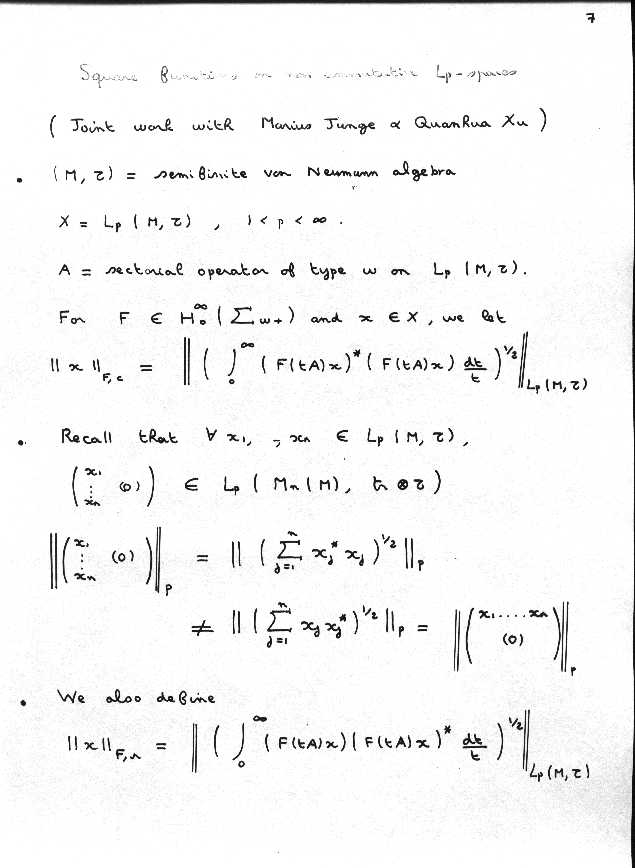 7
Square functions on non commutative Lp-spaces
( Joint work with Marius Junge & Quanhua Xu )
• (M, τ) = semifinite von Neumann algebra
X = Lp (M, τ) , 1 < p < ∞ .
A = sectorial operator of type ω on Lp (M, τ).
For F ∈ H₀^∞ ( Σ ω+ ) and x ∈ X, we let
‖ x ‖_{F,c} = ‖ ( ∫₀^∞ ( F(tA)x )* ( F(tA)x ) dt/t )^{1/2} ‖_{Lp(M,τ)}
• Recall that ∀ x₁, , xn ∈ Lp (M, τ),
( x₁ ⋮ xn (0) ) ∈ Lp ( Mn(M), tr ⊗ τ )
‖ ( x₁ ⋮ xn (0) ) ‖_p = ‖ ( Σ_{j=1}^n xj* xj )^{1/2} ‖_p
≠ ‖ ( Σ_{j=1}^n xj xj* )^{1/2} ‖_p = ‖ ( x₁ .... xn (0) ) ‖_p
• We also define
‖ x ‖_{F,r} = ‖ ( ∫₀^∞ ( F(tA)x ) ( F(tA)x )* dt/t )^{1/2} ‖_{Lp(M,τ)}